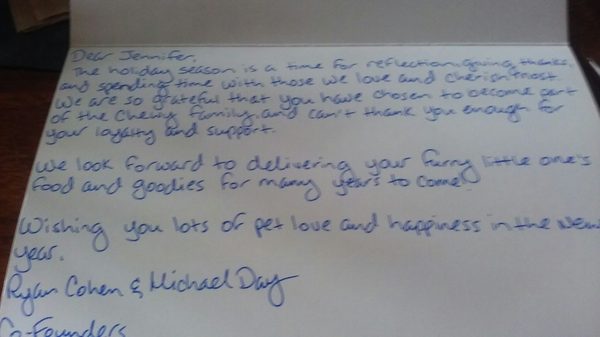 Dear Jennifer,
The holiday season is a time for reflection, giving thanks,
and spending time with those we love and cherish most.
We are so grateful that you have chosen to become part
of the Chewy family, and can't thank you enough for
your loyalty and support.
We look forward to delivering your furry little one's
food and goodies for many years to come!
Wishing you lots of pet love and happiness in the New
year.
Ryan Cohen & Michael Day
Co-Founders